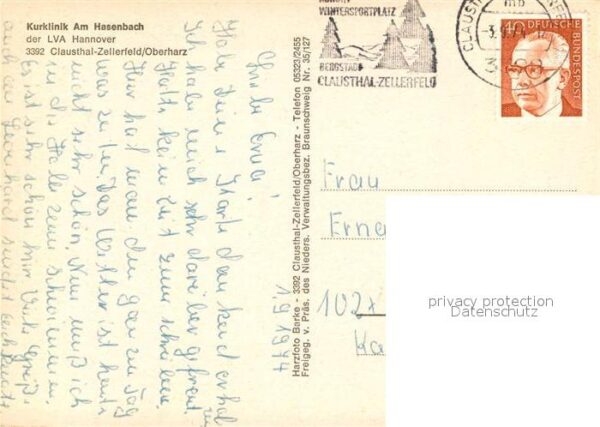 Kurklinik Am Hasenbach
der LVA Hannover
3392 Clausthal-Zellerfeld/Oberharz
1.9.1974
Habe Deine Karte dankend erhal
Ich habe mich sehr darüber gefreut
Hatte kein Zeit zum schreiben.
Hier hat man den ganzen Tag
was zu tun. Das Wetter ist heute
nicht sehr schön. Nun muß ich
in die Halle zum schwimmen.
Es ist sehr schön hier. Viele Grüße
auch an Leonhard
Harzfoto Barke - 3392 Clausthal-Zellerfeld/Oberharz - Telefon 05323/2455
Freigeg. v. Präs. des Nieders. Verwaltungsbez. Braunschweig Nr. 35/127
WINTERSPORTPLATZ
BERGSTADT
CLAUSTHAL-ZELLERFELD
40 DEUTSCHE
BUNDESPOST
Frau
Erne
102
Ka
privacy protection
Datenschutz